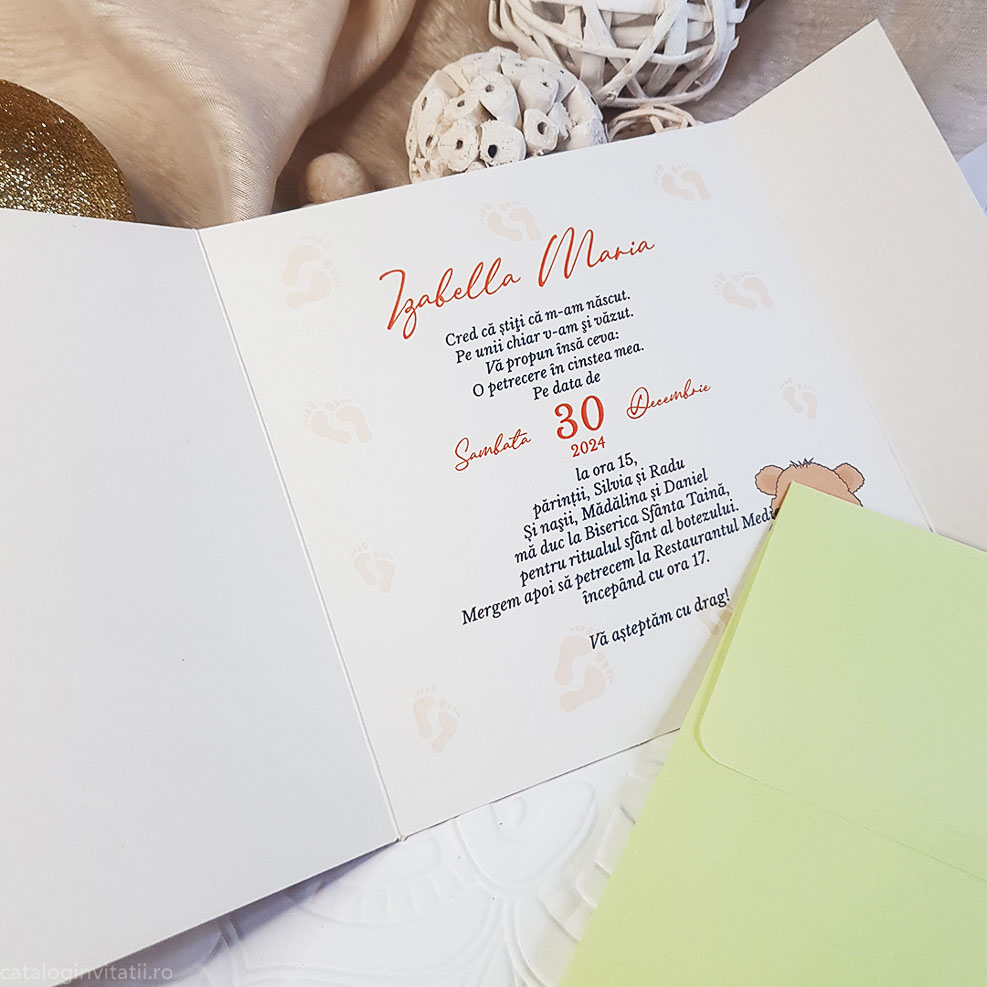 Izabella Maria
Cred că știţi că m-am născut.
Pe unii chiar v-am şi văzut.
Vă propun însă ceva:
O petrecere în cinstea mea.
Pe data de
Sambata 30 Decembrie
2024
la ora 15,
părinții, Silvia și Radu
Și naşii, Mădălina și Daniel
mă duc la Biserica Sfânta Taină,
pentru ritualul sfânt al botezului.
Mergem apoi să petrecem la Restaurantul
începând cu ora 17.
Vă așteptăm cu drag!
cataloginvitatii.ro